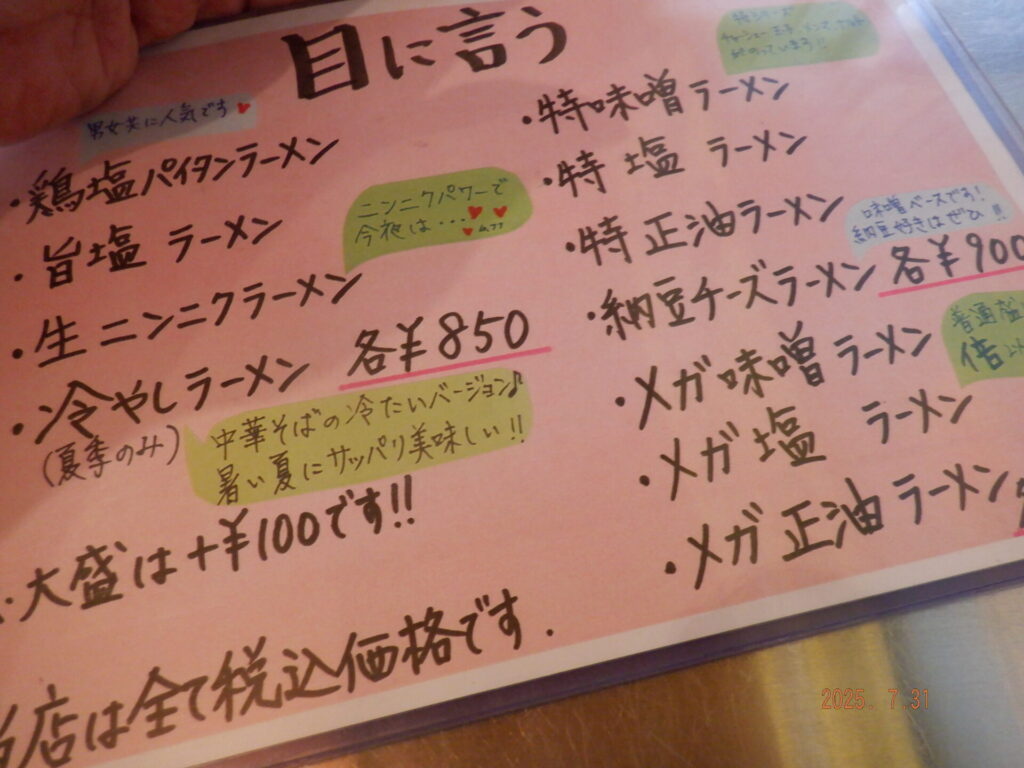 目に言う
男女共に人気です
・鶏塩パイタンラーメン
・旨塩 ラーメン
ニンニクパワーで
今夜は・・・
・生ニンニクラーメン
・冷やしラーメン 各¥850
(夏季のみ)
中華そばの冷たいバージョン♪
暑い夏にサッパリ美味しい!!
大盛は+¥100です!!
店は全て税込価格です.
・特味噌ラーメン
・特 塩 ラーメン
・特 正油ラーメン
味噌ベースです!
納豆好きはぜひ!!
・納豆チーズラーメン 各¥900
普通盛
倍以
・メガ味噌ラーメン
・メガ 塩 ラーメン
・メガ 正油ラーメン
2025. 7.31